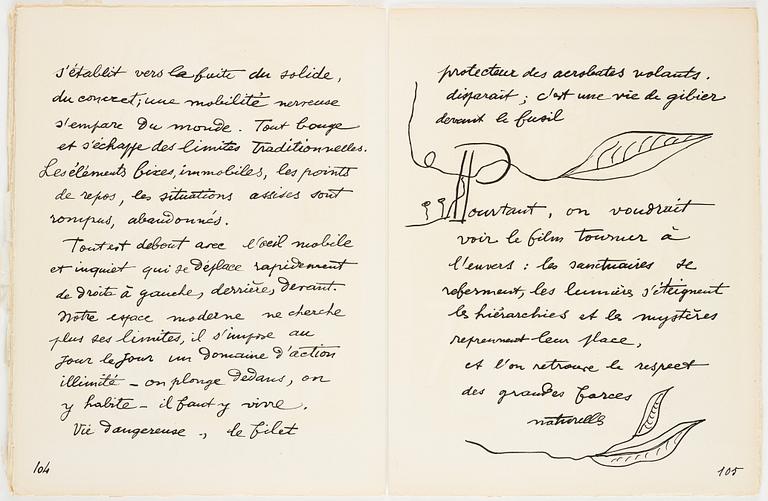 s'établit vers la fuite du solide,
du concret, une mobilité nerveuse
s'empare du monde. Tout bouge
et s'échappe des limites traditionnelles.
Les éléments fixes, immobiles, les points
de repos, les situations assises sont
rompus, abandonnés.
Tout est debout avec l'oeil mobile
et inquiet qui se déplace rapidement
de droite à gauche, derrière, devant.
Notre espace moderne ne cherche
plus ses limites, il s'impose au
jour le jour un domaine d'action
illimité - on plonge dedans, on
y habite - il faut y vivre.
Vie dangereuse -, le filet
104
protecteur des acrobates volants.
disparait ; c'est une vie de gibier
devant le fusil
Pourtant, on voudrait
voir le film tourner à
l'envers : les sanctuaires se
referment, les lumières s'éteignent
les hiérarchies et les mystères
reprennent leur place,
et l'on retrouve le respect
des grandes forces
naturelles
105